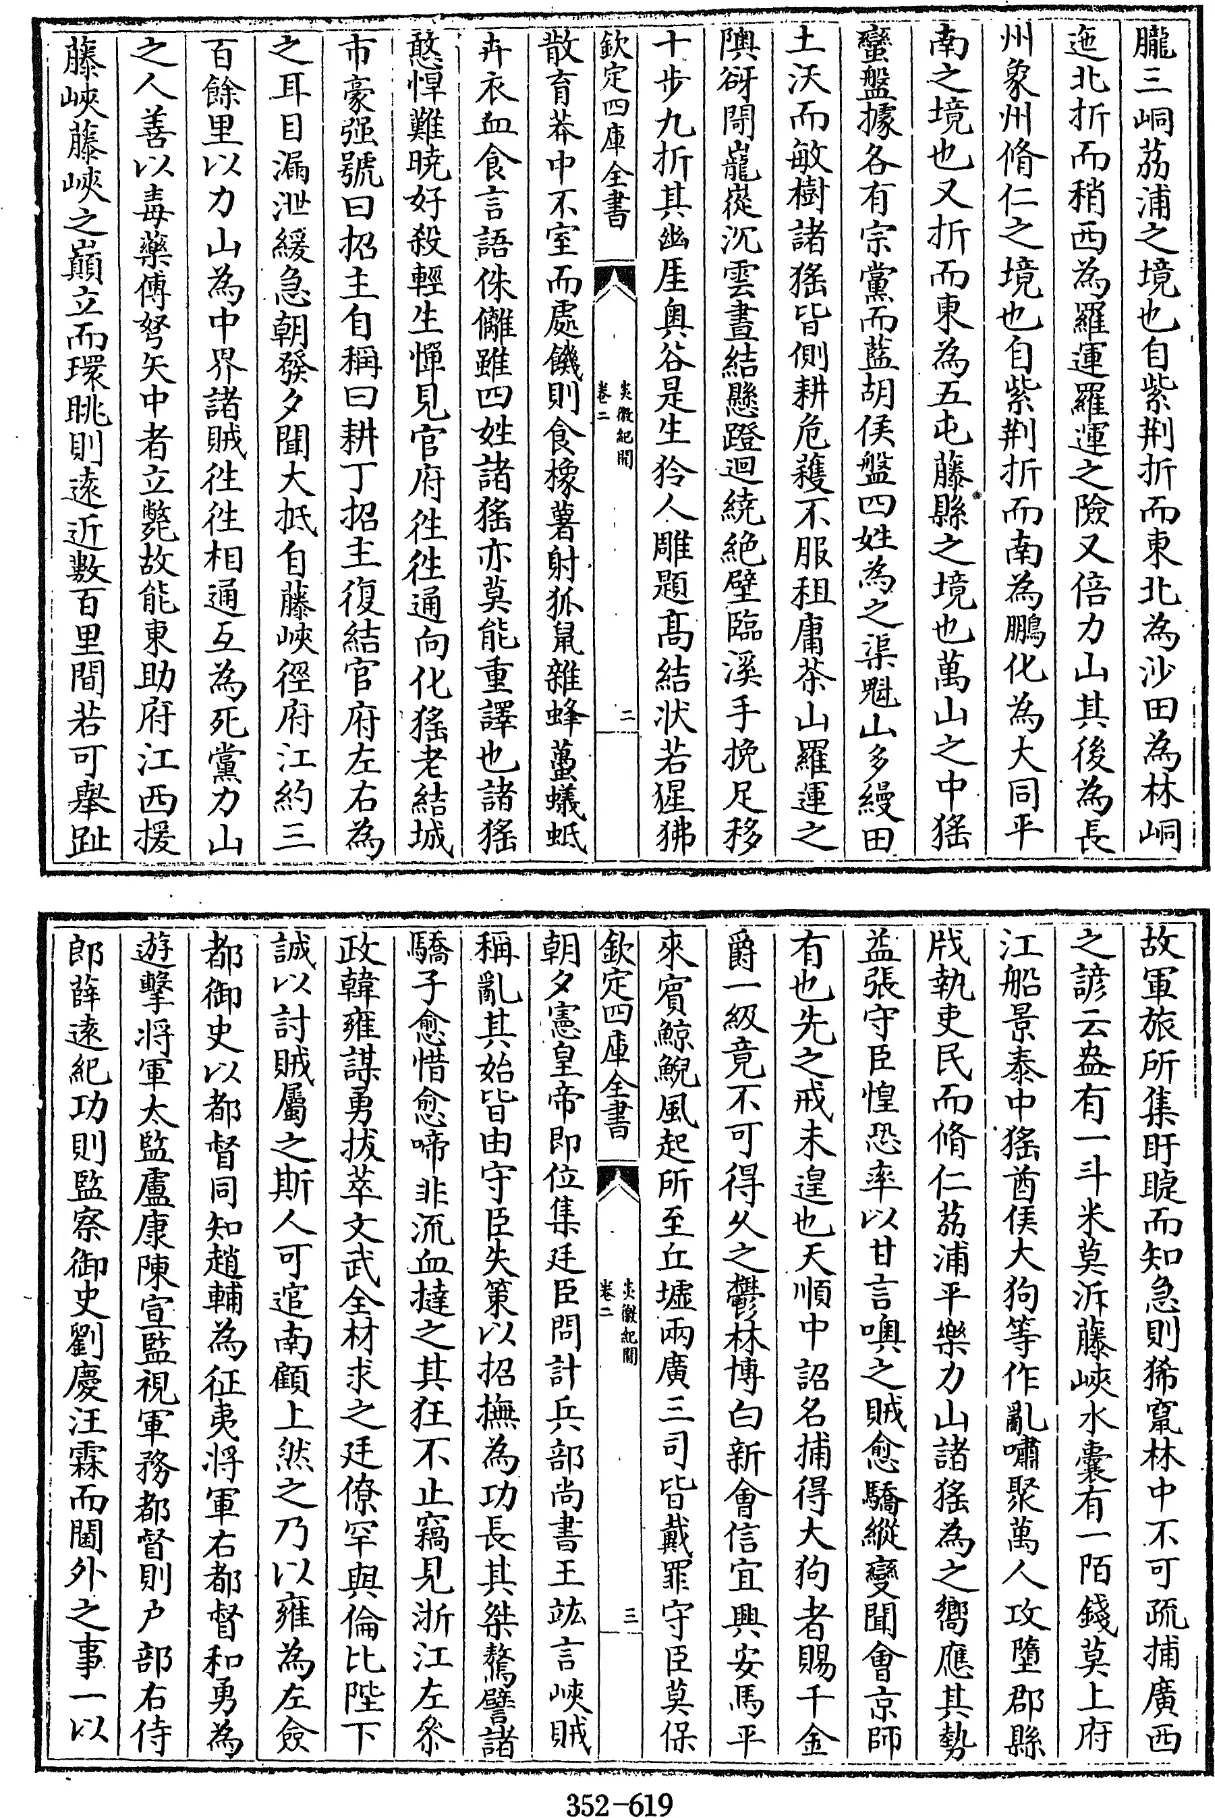 朧三峒荔浦之境也自紫荆折而東北為沙田為林峒
迤北折而稍西為羅運羅運之險又倍力山其後為長
州象州脩仁之境也自紫荆折而南為鵬化為大同平
南之境也又折而東為五屯藤縣之境也萬山之中猺
蠻盤據各有宗黨而藍胡侯盤四姓為之渠魁山多縵田
土沃而敏樹諸猺皆側耕危穫不服租庸茶山羅運之
隩谺閜巃嵸沉雲晝結懸磴迴繞絶壁臨溪手挽足移
十步九折其幽厓奥谷是生狑人雕題髙結状若猩狒
欽定四庫全書
炎徼紀聞
卷二
二
散育莽中不室而處饑則食橡薯射狐鼠雜蜂蠆蟻蚳
卉衣血食言語侏𠌯雖四姓諸猺亦莫能重譯也諸猺
憨悍難曉好殺輕生憚見官府徃徃通向化猺老結城
市豪强號曰招主自稱曰耕丁招主復結官府左右為
之耳目漏泄緩急朝發夕聞大抵自藤峽徑府江約三
百餘里以力山為中界諸賊徃徃相通互為死黨力山
之人善以毒藥傅弩矢中者立斃故能東助府江西援
藤峽藤峽之巔立而環眺則遠近數百里間若可舉趾
故軍旅所集盱睫而知急則狶竄林中不可疏捕廣西
之諺云盎有一斗米莫泝藤峽水囊有一陌錢莫上府
江船景泰中猺酋侯大狗等作亂嘯聚萬人攻墮郡縣
戕執吏民而脩仁荔浦平樂力山諸猺為之嚮應其勢
益張守臣惶恐率以甘言噢之賊愈驕縱變聞會京師
有也先之戒未遑也天順中詔名捕得大狗者賜千金
爵一級竟不可得久之鬱林博白新會信宜興安馬平
來賓鯨鯢風起所至丘墟兩廣三司皆戴罪守臣莫保
欽定四庫全書
炎徼紀聞
卷二
三
朝夕憲皇帝即位集廷臣問計兵部尚書王竑言峽賊
稱亂其始皆由守臣失策以招撫為功長其桀驁譬諸
驕子愈惜愈啼非流血撻之其狂不止竊見浙江左叅
政韓雍謀勇拔萃文武全材求之廷僚罕與倫比陛下
誠以討賊屬之斯人可逭南顧上然之乃以雍為左僉
都御史以都督同知趙輔為征夷將軍右都督和勇為
遊擊將軍太監盧康陳宣監視軍務都督則户部右侍
郎薛遠紀功則監察御史劉慶汪霖而閫外之事一以
352-619